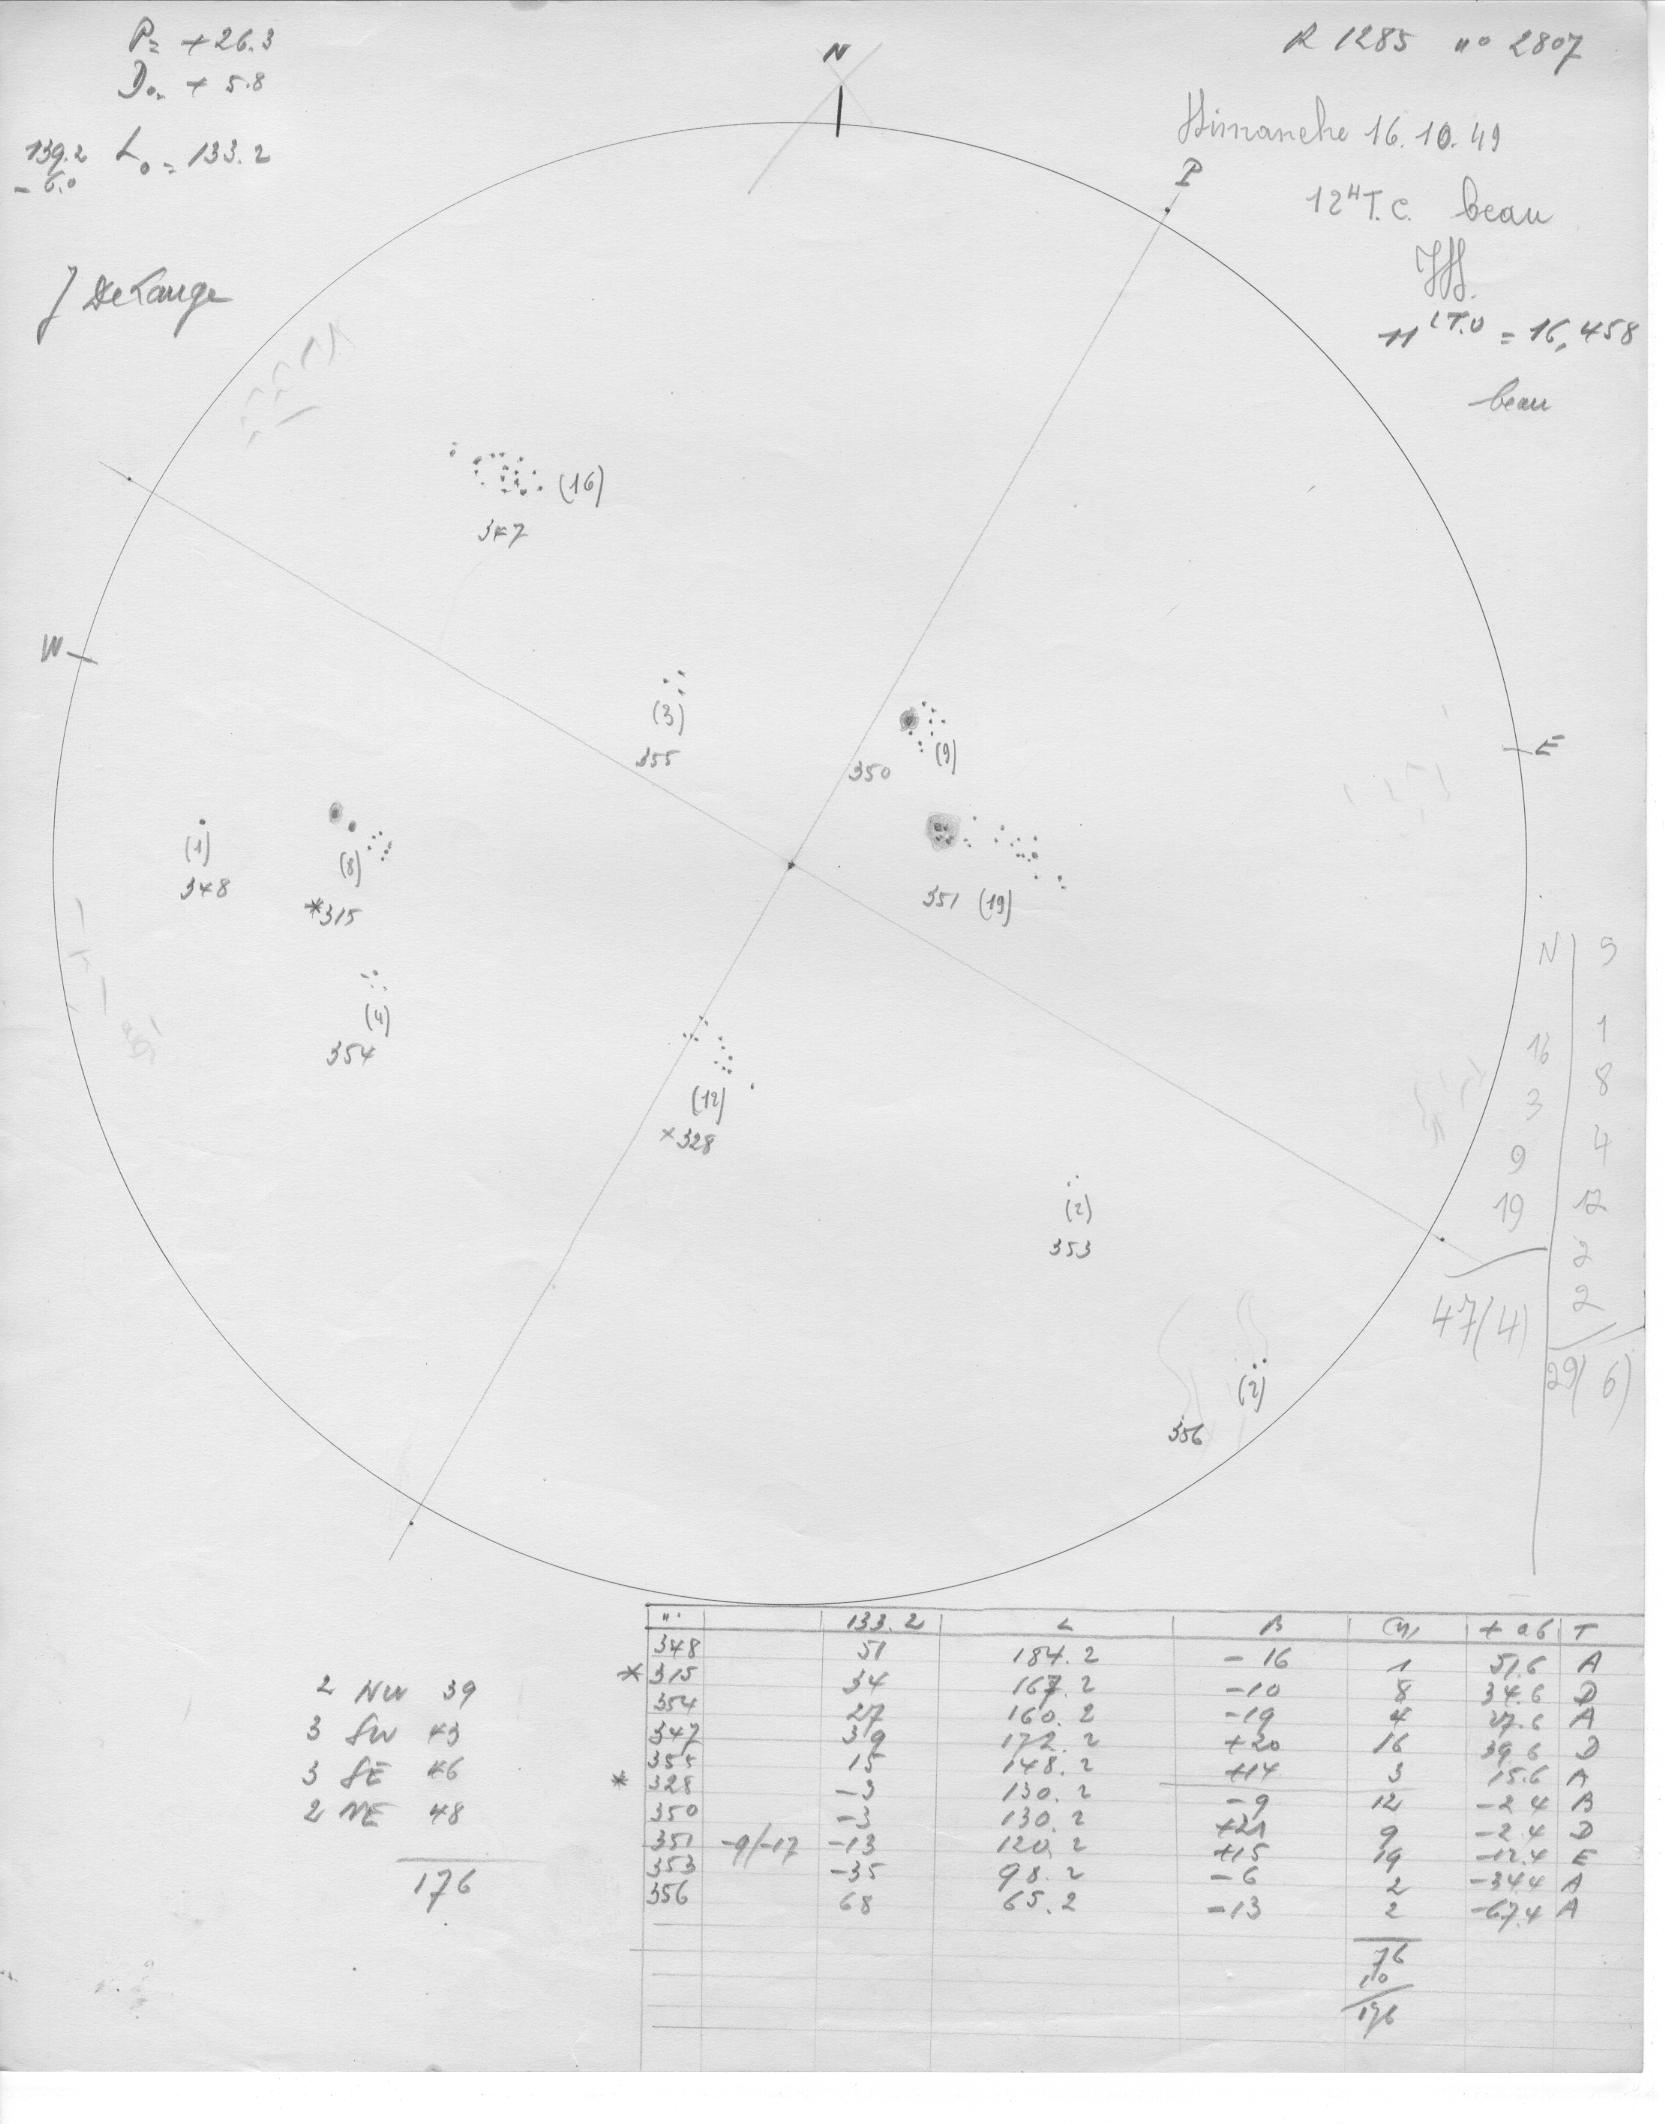 P= +26.3
Do= +5.8
139.2 Lo= 133.2
-6.0
J Dekange
N
R 1285 no 2807
Dimanche 16.10.49
12H T.C. beau
11 (T.U = 16,458
beau
P
W
E
(16)
347
(3)
355
350 (9)
(1)
348
(8)
*315
351 (19)
(4)
354
(12)
×328
(2)
353
(2)
356
N | S
16 | 1
3 | 8
9 | 4
19 | 12
2
2
47(4)
29(6)
2 NW 39
3 SW 43
3 SE 46
2 NE 48
176
n° 133.2 L B (n) +0.6 T
348 51 184.2 -16 1 51.6 A
*315 34 167.2 -10 8 34.6 D
354 27 160.2 -19 4 27.6 A
347 39 172.2 +20 16 39.6 D
355 15 148.2 +14 3 15.6 A
*328 -3 130.2 -9 12 -2.4 B
350 -3 130.2 +21 9 -2.4 D
351 -9/-17 -13 120.2 +15 19 -12.4 E
353 -35 98.2 -6 2 -34.4 A
356 68 65.2 -13 2 -67.4 A
76
10
176